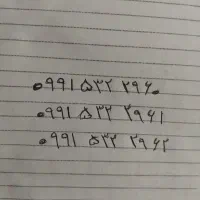 ۰۹۹۱ ۵۳۲ ۲۹۶۰
۰۹۹۱ ۵۳۲ ۲۹۶۱
۰۹۹۱ ۵۳۲ ۲۹۶۲